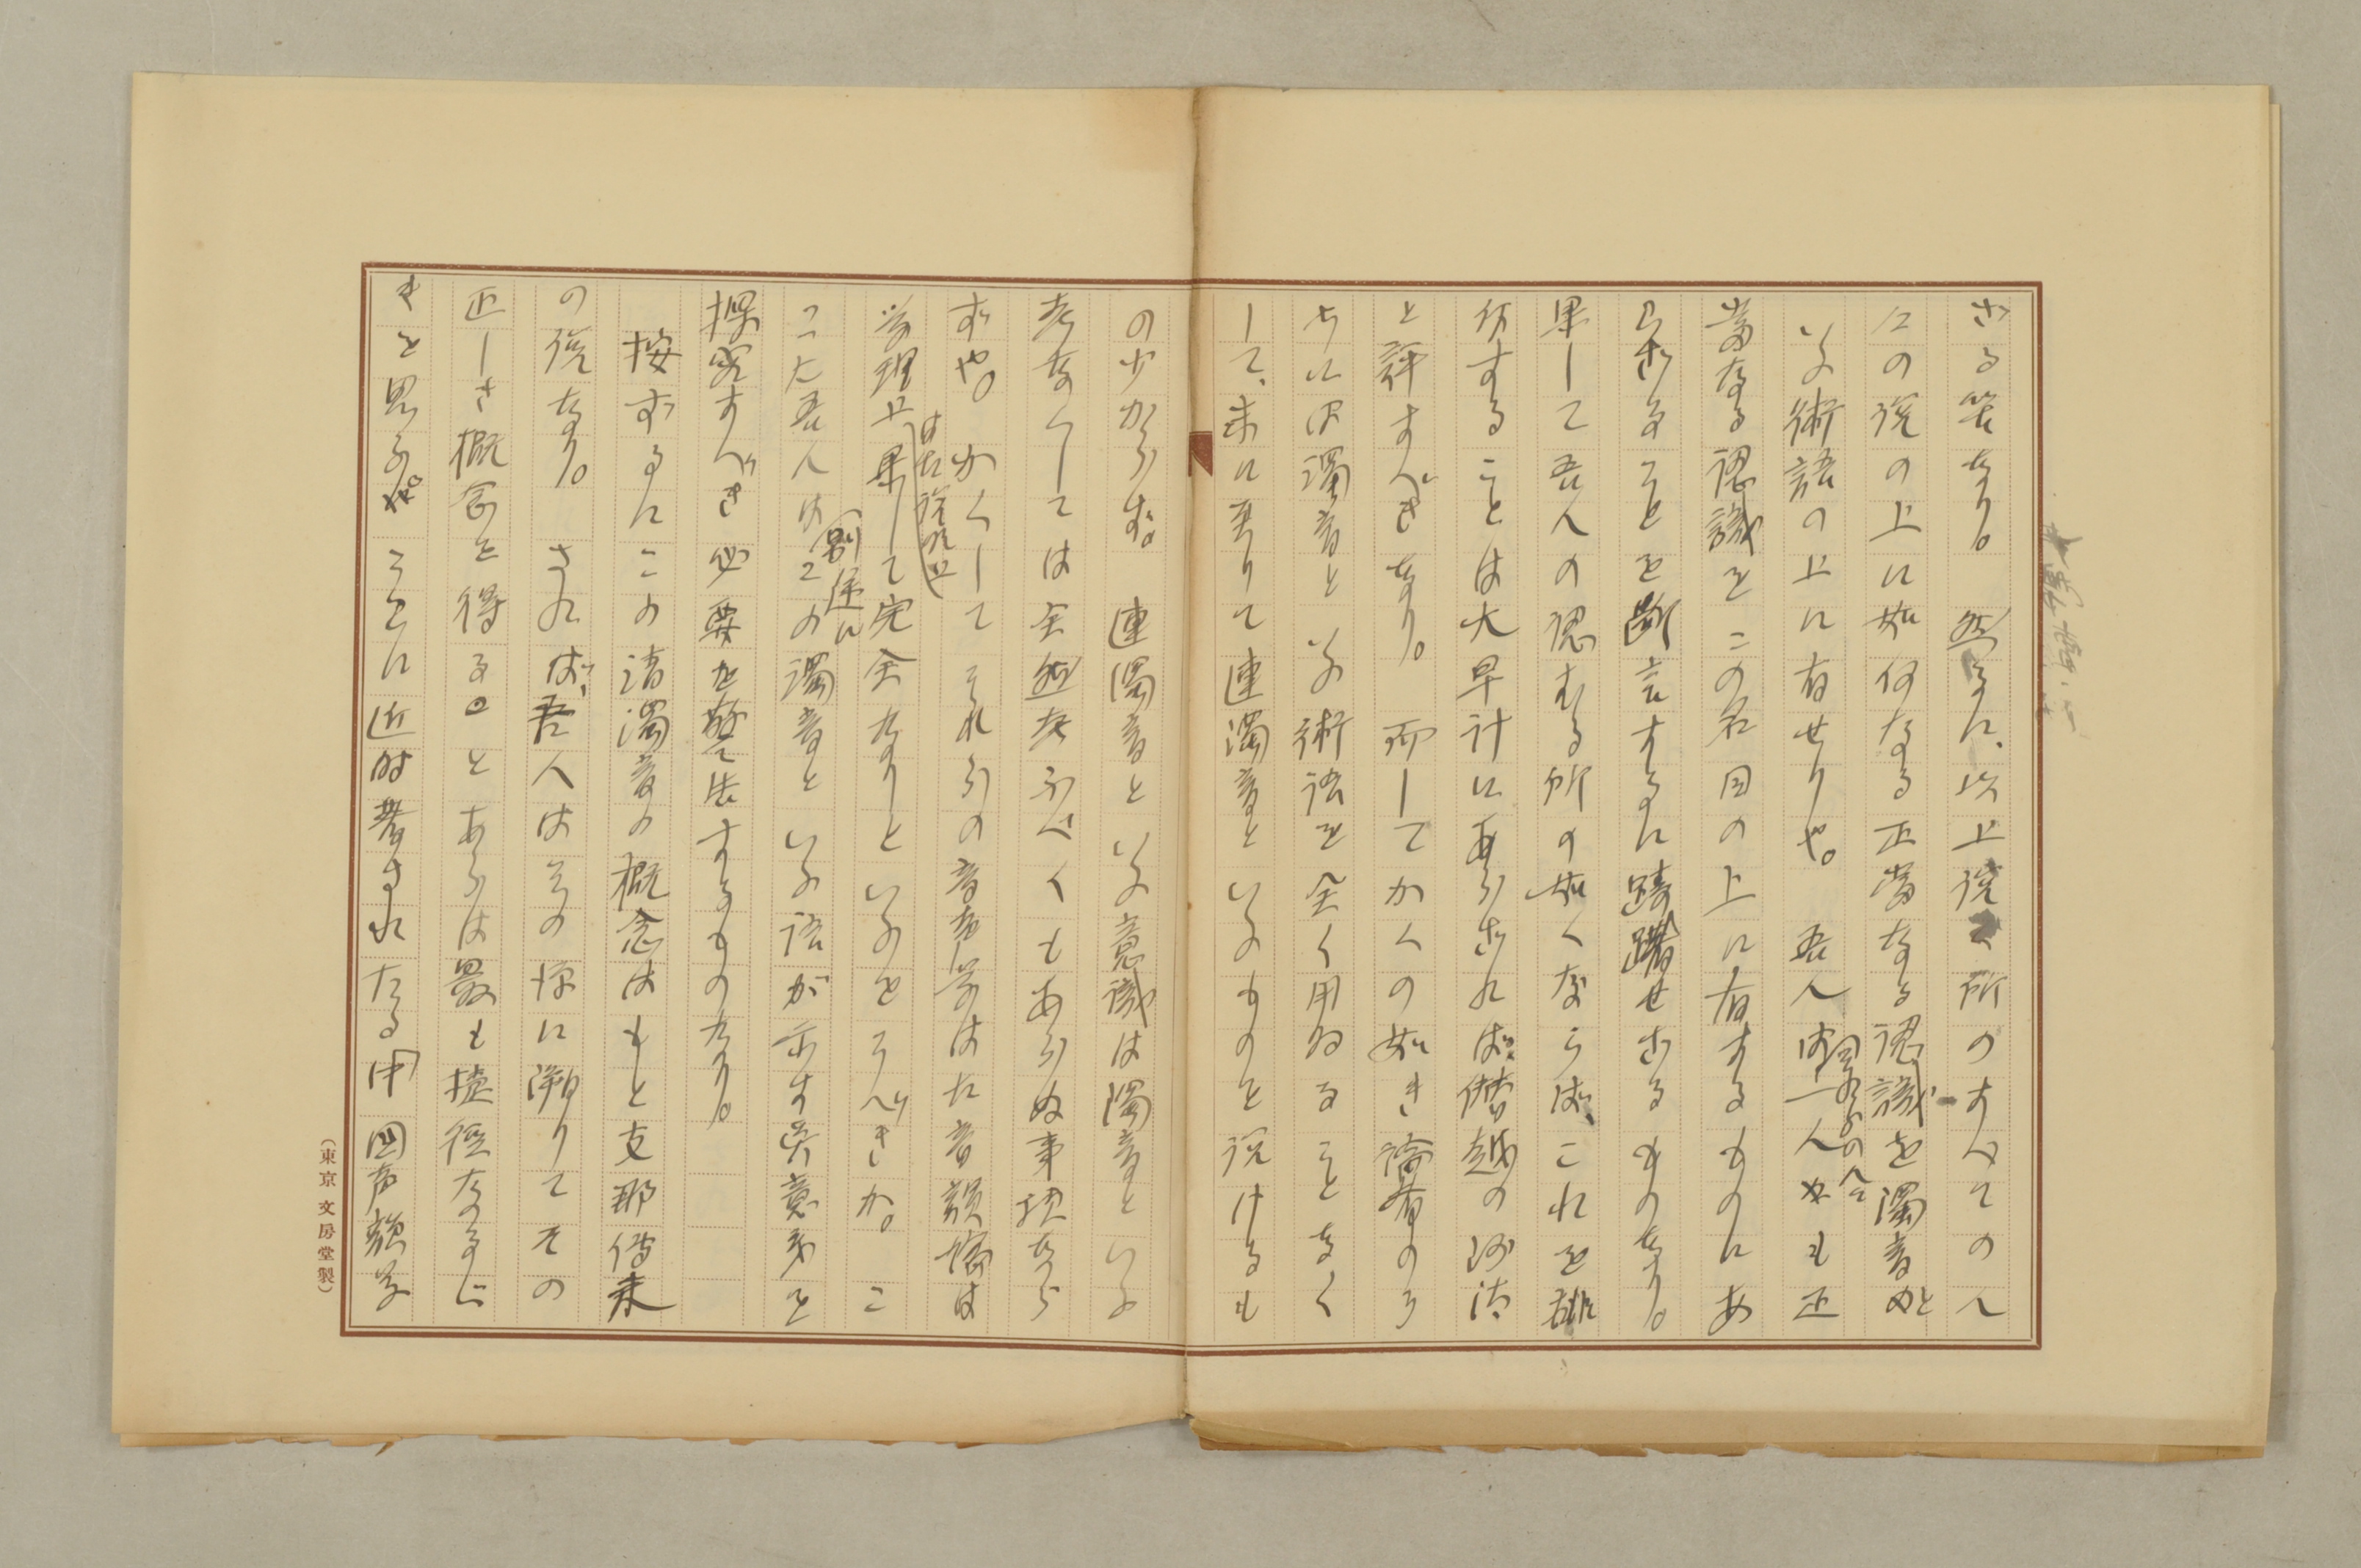 ざる筈なり。然るに、以上説く所のすべての人
にの説の上に如何なる正当なる認識を濁音と
いふ術語の上に有せりや。吾人は一人も正
当なる認識をこの名目の上に有するものにあ
らざることを断言するに躊躇せざるものなり。
果して吾人の認むる所の如くならば、これを
倣することは大早計にあらざれば僭越の沙汰
と評すべきなり。而してかくの如き論者のう
ちには濁音といふ術語を全く用ゐることなく
して、末に至りて連濁音といふものを説けるも
の少からず。連濁音といふ意識は濁音といふ
をなくしては全然考ふべくもあらぬ事項なら
ずや。かくしてそれらの音声学はた音韻論は
学理上果して完全なりといふをうべきか。こ
はた説明上
こに吾人は別途にこの濁音といふ語が示す真意義を
探究すべき必要を敢て告するものなり。
按ずるにこの清濁音の概念はもと支那伝来
の説なり。されば吾人はその源に溯りてその
正しき概念を得ることあらば最も捷径なるべ
きを思ふ。ここに近時著されたる中国声韻学
(東京 文房堂製)